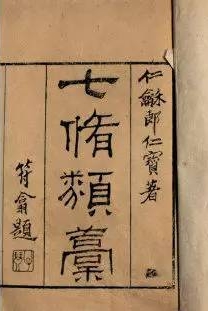 仁龢郎仁寶著
七脩類藁
符翕題